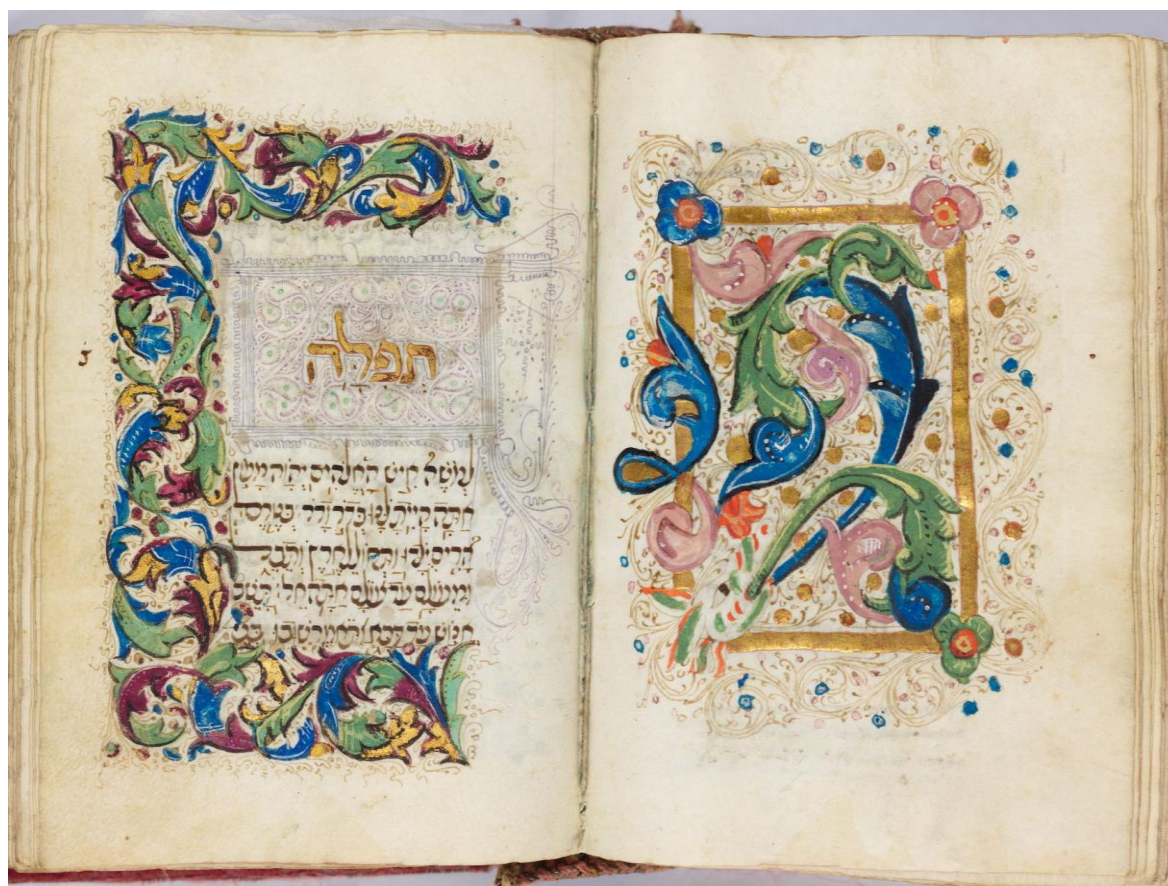 תפלה
למשה איש האלהים יהוה מעון
אתה היית לנו בדר ודר בטרם
הרים ילדו ותחולל ארץ ותבל
ומעולם עד עולם אתה אל תשב
אנוש עד דכא ותאמר שובו בני